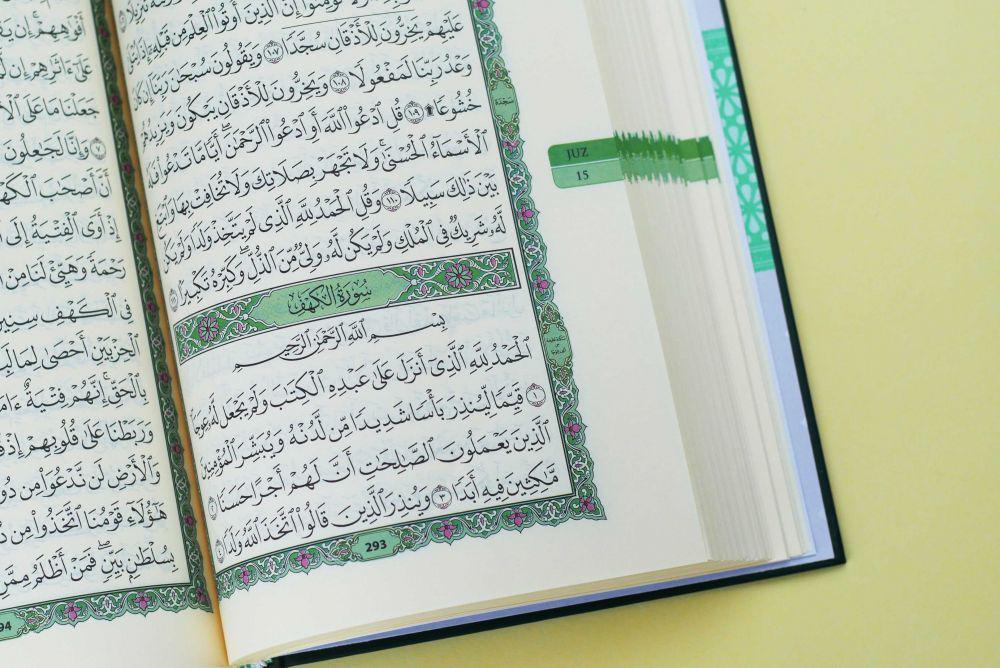 تُؤْمِنُوٓا۟ إِنَّ ٱلَّذِينَ أُوتُوا۟ ٱلْعِلْمَ مِن قَبْلِهِۦٓ إِذَا يُتْلَىٰ
عَلَيْهِمْ يَخِرُّونَ لِلْأَذْقَانِ سُجَّدًا ١٠٧ وَيَقُولُونَ سُبْحَٰنَ رَبِّنَآ إِن كَانَ
وَعْدُ رَبِّنَا لَمَفْعُولًا ١٠٨ وَيَخِرُّونَ لِلْأَذْقَانِ يَبْكُونَ وَيَزِيدُهُمْ
خُشُوعًا ۩ ١٠٩ قُلِ ٱدْعُوا۟ ٱللَّهَ أَوِ ٱدْعُوا۟ ٱلرَّحْمَٰنَ ۖ أَيًّا مَّا تَدْعُوا۟ فَلَهُ
ٱلْأَسْمَآءُ ٱلْحُسْنَىٰ ۚ وَلَا تَجْهَرْ بِصَلَاتِكَ وَلَا تُخَافِتْ بِهَا وَٱبْتَغِ
بَيْنَ ذَٰلِكَ سَبِيلًا ١١٠ وَقُلِ ٱلْحَمْدُ لِلَّهِ ٱلَّذِى لَمْ يَتَّخِذْ وَلَدًا وَلَمْ يَكُن
لَّهُۥ شَرِيكٌ فِى ٱلْمُلْكِ وَلَمْ يَكُن لَّهُۥ وَلِىٌّ مِّنَ ٱلذُّلِّ ۖ وَكَبِّرْهُ تَكْبِيرًۢا ١١١
سُورَةُ الكَهْفِ
بِسْمِ ٱللَّهِ ٱلرَّحْمَٰنِ ٱلرَّحِيمِ
ٱلْحَمْدُ لِلَّهِ ٱلَّذِىٓ أَنزَلَ عَلَىٰ عَبْدِهِ ٱلْكِتَٰبَ وَلَمْ يَجْعَل لَّهُۥ عِوَجَا
١ قَيِّمًا لِّيُنذِرَ بَأْسًا شَدِيدًا مِّن لَّدُنْهُ وَيُبَشِّرَ ٱلْمُؤْمِنِينَ
ٱلَّذِينَ يَعْمَلُونَ ٱلصَّٰلِحَٰتِ أَنَّ لَهُمْ أَجْرًا حَسَنًا ٢
مَّٰكِثِينَ فِيهِ أَبَدًا ٣ وَيُنذِرَ ٱلَّذِينَ قَالُوا۟ ٱتَّخَذَ ٱللَّهُ وَلَدًا ٤
293
سَجْدَة
JUZ
15
أَفْوَٰهِهِمْ ۚ إِن
عَلَىٰٓ ءَاثَٰرِهِمْ إِن
جَعَلْنَا مَا عَلَى
٧ وَإِنَّا لَجَٰعِلُونَ
أَنَّ أَصْحَٰبَ ٱلْكَهْفِ
إِذْ أَوَى ٱلْفِتْيَةُ إِلَى
رَحْمَةً وَهَيِّئْ لَنَا مِنْ
فِى ٱلْكَهْفِ سِنِينَ
ٱلْحِزْبَيْنِ أَحْصَىٰ لِمَا
بِٱلْحَقِّ ۚ إِنَّهُمْ فِتْيَةٌ
وَرَبَطْنَا عَلَىٰ قُلُوبِهِمْ إِذْ
وَٱلْأَرْضِ لَن نَّدْعُوَا۟ مِن
هَٰٓؤُلَآءِ قَوْمُنَا ٱتَّخَذُوا۟ مِن
بِسُلْطَٰنٍۭ بَيِّنٍ ۖ فَمَنْ أَظْلَمُ مِمَّنِ
94